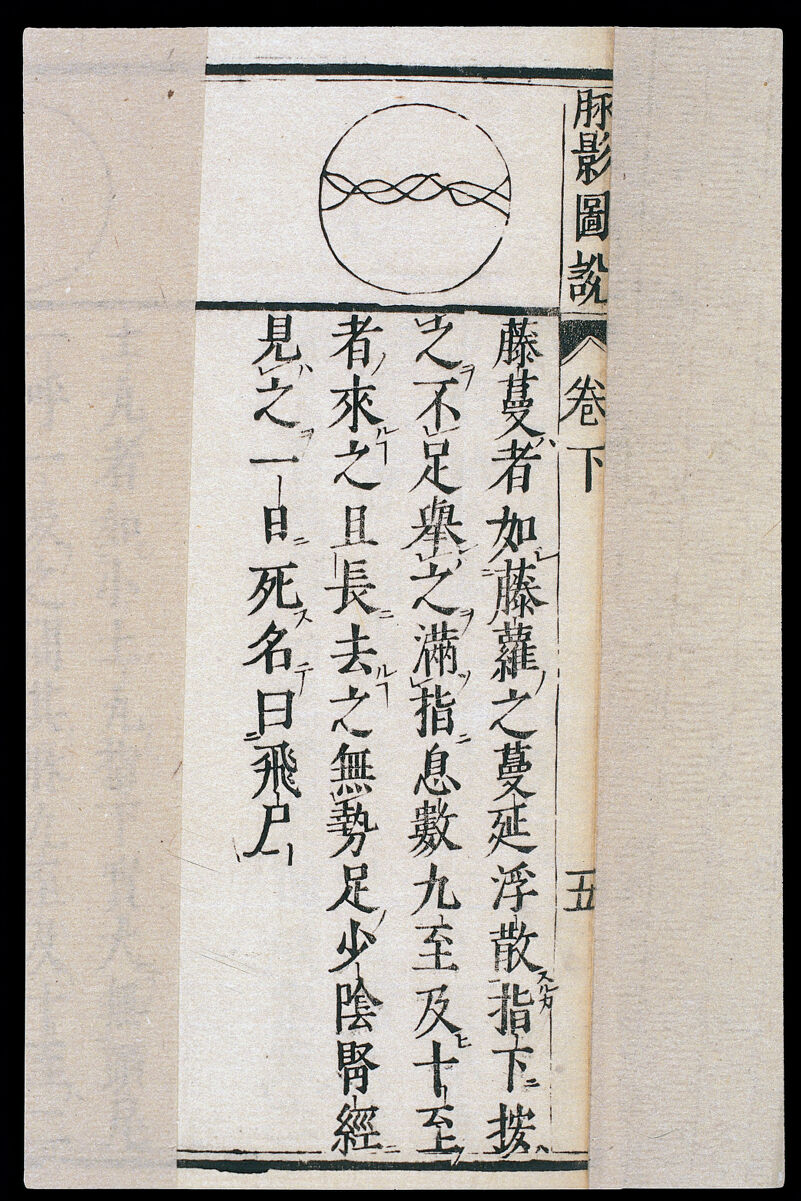 脉影圖說
卷下
五
藤蔓者如藤蘿之蔓延浮散指下按
之不足舉之滿指息數九至及十至
者來之且長去之無勢足少陰腎經
見之一日死名曰飛尸